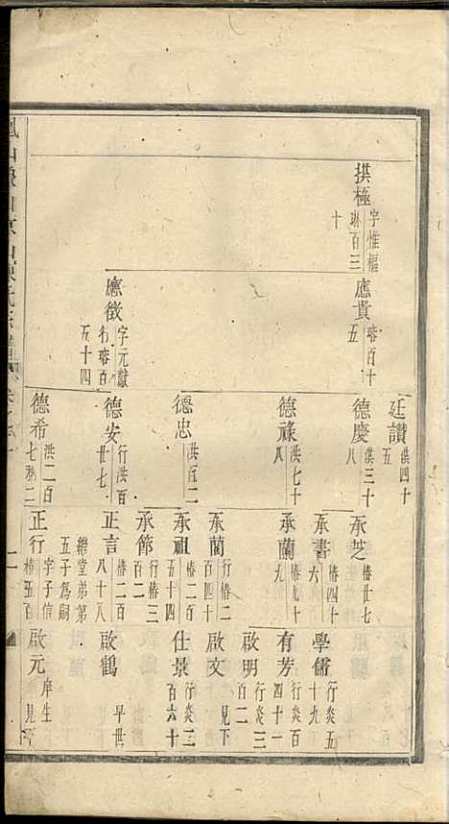 拱極 字惟樞 琳百三十
應貴 瑢百十五
應徵 字元獻 行瑢百五十四
廷讚 洪四十五
德慶 洪三十八
德祿 洪七十八
德忠 洪百二
德安 行洪百廿七
德希 洪二百七
承芝 椿廿七
承書 椿四十六
承蘭 椿九十九
承蘭 行椿二百四十
承祖 椿二百五十四
承節 行椿三百二
正言 椿二百八十八
繼堂弟第五子為嗣
正行 字子信 椿五百
學術 行炎五十九
有芳 行炎百四十一
啟明 行炎三百二
啟文 見下
仕景 行炎二百六十
啟鶴 早世
啟元 庠生 見下